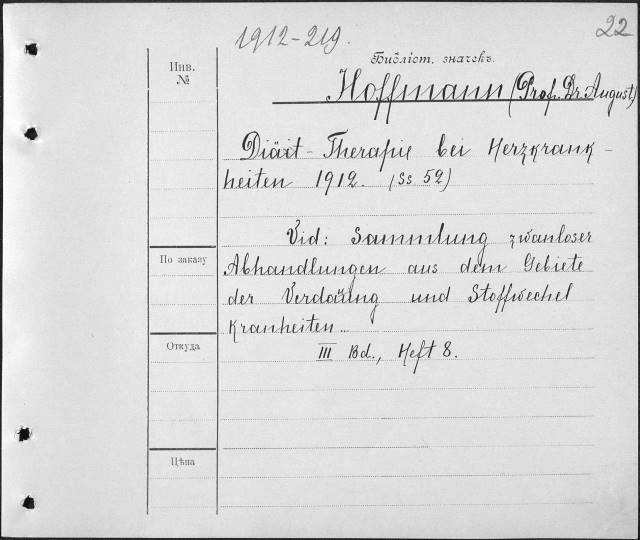 1912-219.
22
Библіот. значекъ.
Инв.
№
Hoffmann (Prof. Dr. August)
Diäit-Therapie bei Herzkrank-
heiten 1912. (Ss 52)
Vid: Sammlung zwanloser
По заказу
Abhandlungen aus dem Gebiete
der Verdaüng und Stoffwechel
Kranheiten...
Откуда
III Bd., Heft 8.
Цѣна